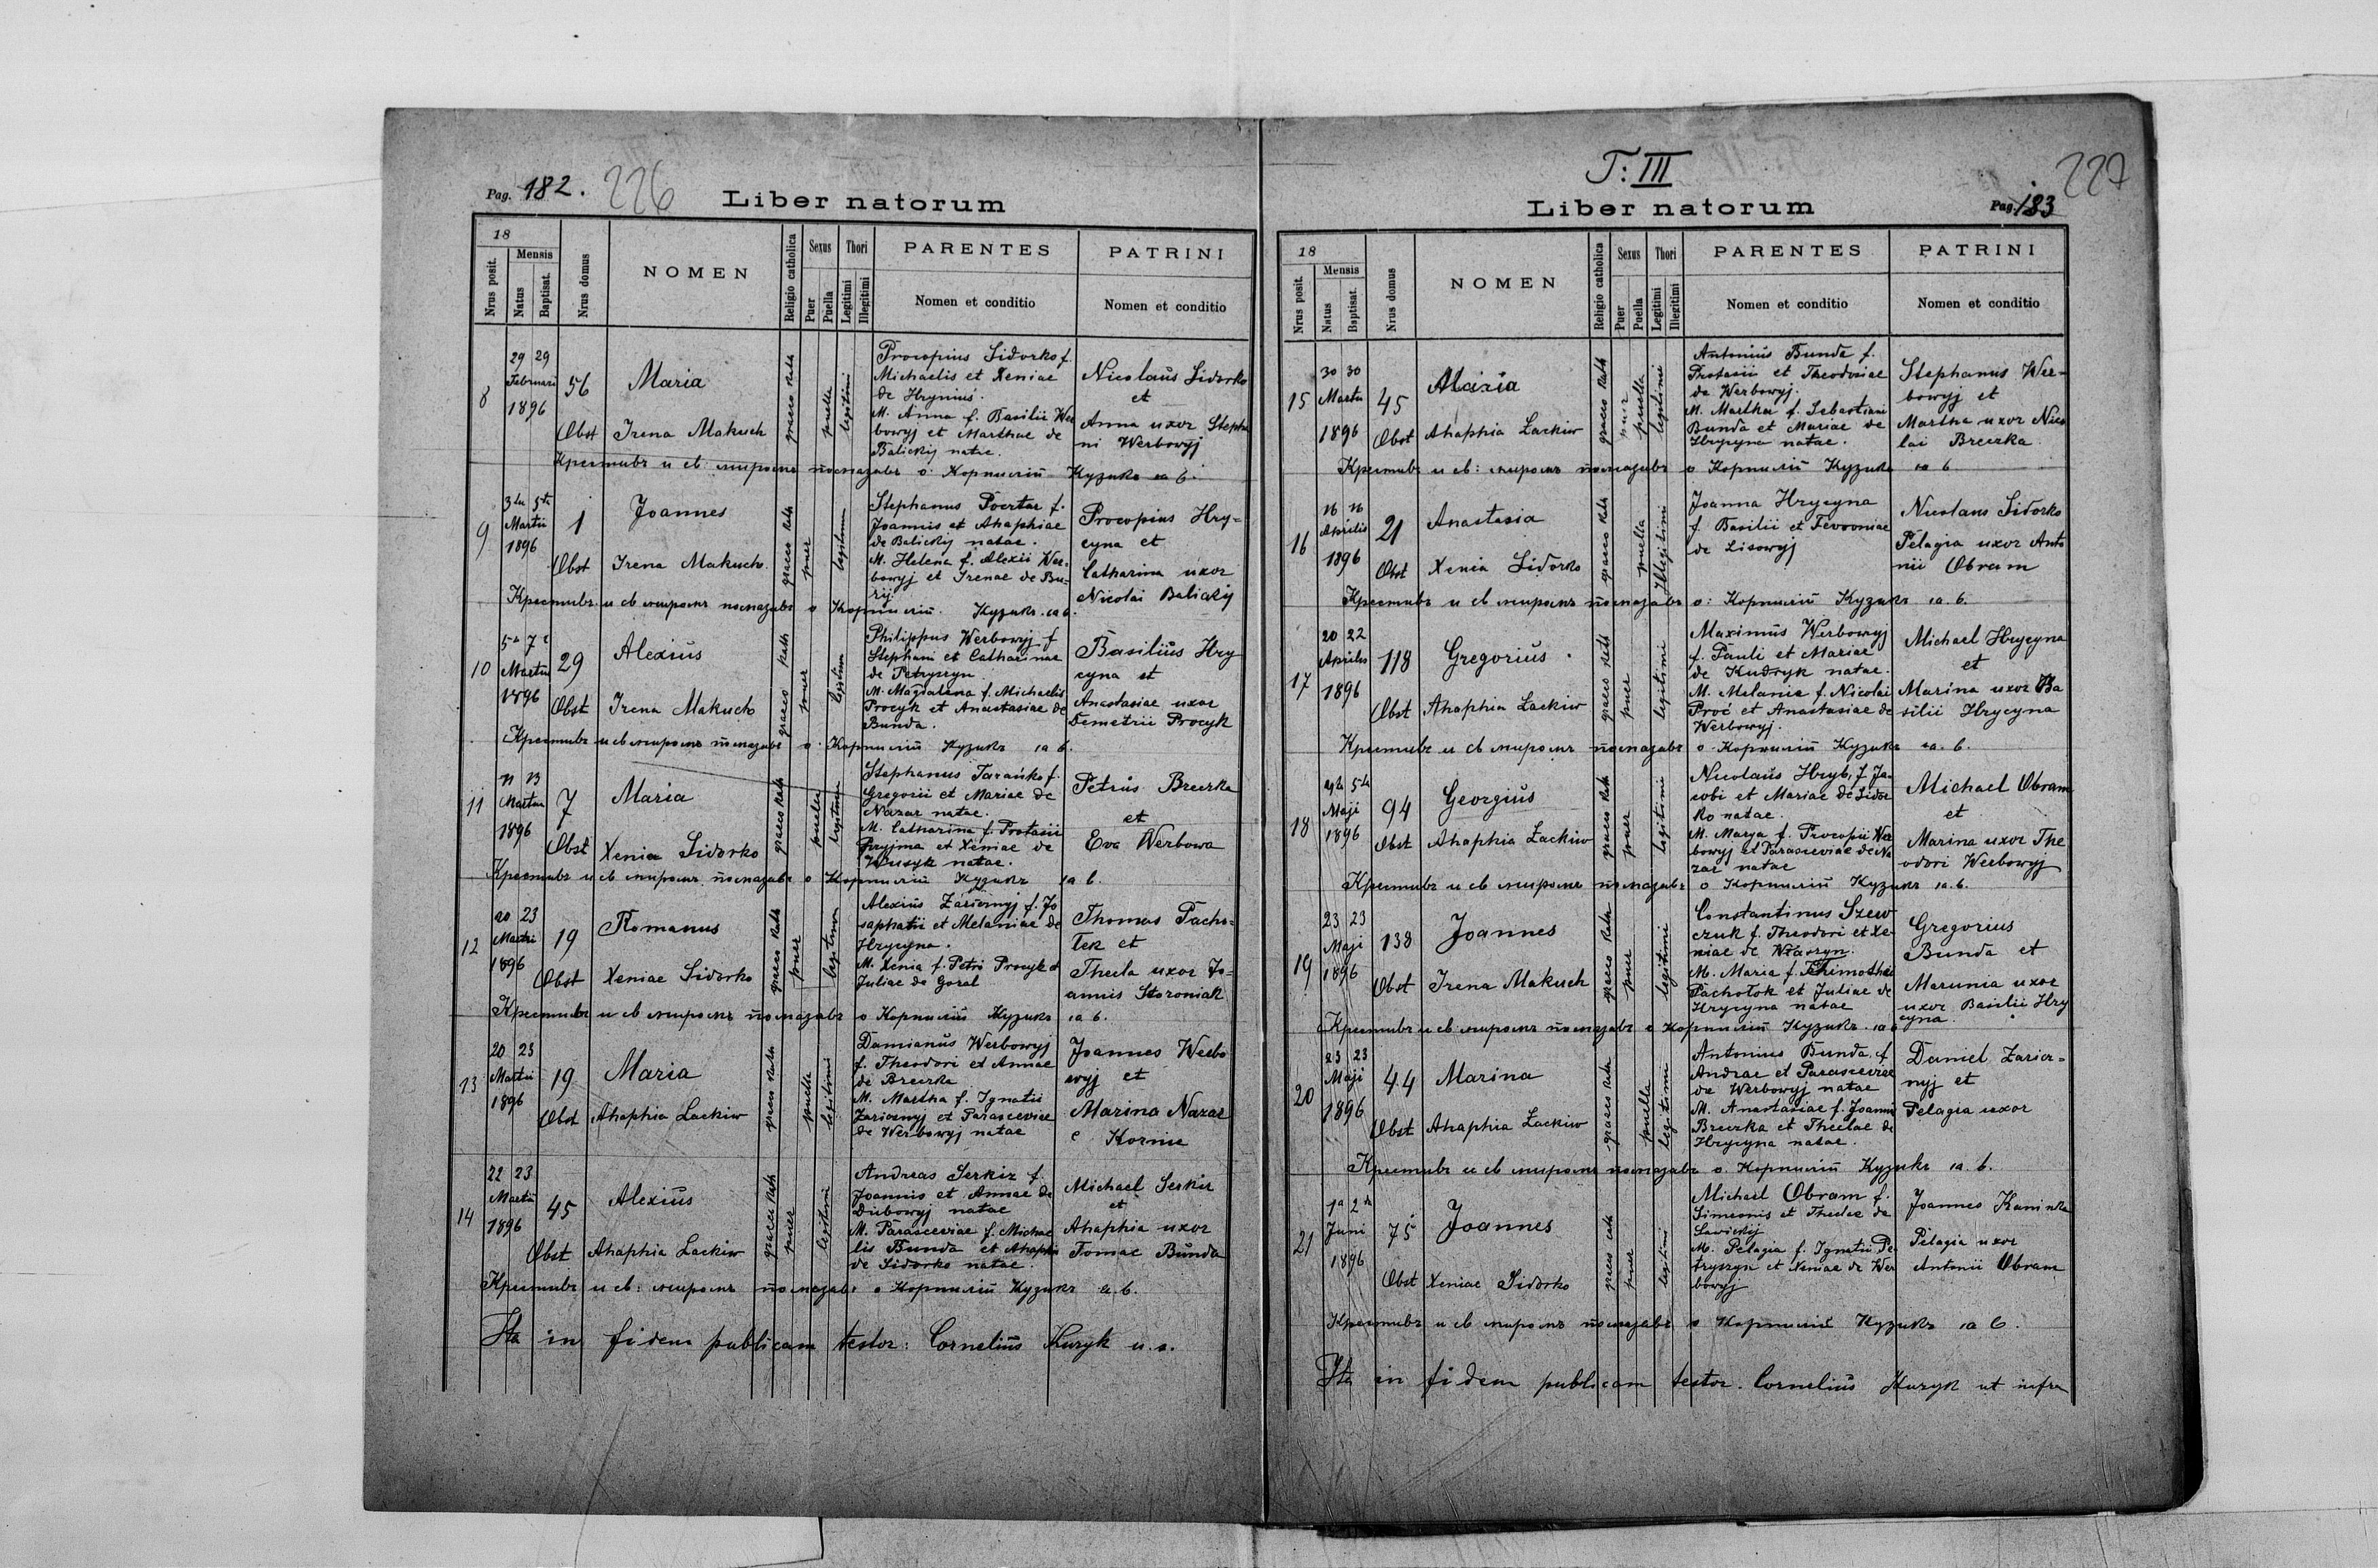 Pag. 182.
226
Liber natorum
18
Mensis
Nrus posit.
Natus
Baptisat.
Nrus domus
NOMEN
Religio catholica
Sexus
Puer
Puella
Thori
Legitimi
Illegitimi
PARENTES
Nomen et conditio
PATRINI
Nomen et conditio
8
29 29
Februarii
1896
56
Maria
Obst Irena Makuch
graeco kath
puella
legitimi
Procopius Sidorko f.
Michaelis et Xeniae
de Hrynius.
M. Anna f. Basilii Wer
bowyj et Marthae de
Balickij natae.
Nicolaus Sidorko
et
Anna uxor Stepha
ni Werbowyj
Крестивъ и св: миромъ помазавъ о: Корнилій Кузикъ
9
3tia 5ta
Martii
1896
1
Joannes
Obst Irena Makuch.
graeco kath
puer
legitimi
Stephanus Poertar f.
Joannis et Ahaphiae
de Balickij natae.
M. Helena f. Alexii Wer-
bowyj et Irenae de Bu-
rij.
Procopius Hry-
cyna et
Catharina uxor
Nicolai Balickij
Крестивъ и св миромъ помазавъ о Корнилій Кузикъ
10
5a 7a
Martii
1896
29
Alexius
Obst Irena Makuch
graeco kath
puer
legitim
Philippus Werbowyj f
Stephani et Catharinae
de Petryszyn
M. Magdalena f. Michaelis
Procyk et Anastasiae de
Bunda.
Basilius Hry
cyna et
Anastasiae uxor
Demetrii Procyk
Крестивъ и св миромъ помазавъ о. Корнилій Кузикъ
11
11 13
Martii
1896
7
Maria
Obst Xenia Sidorko
graeco kath
puella
legitimi
Stephanus Tarańko f.
Gregorii et Mariae de
Nazar natae.
M. Catharina f. Protasii
Pryjma et Xeniae de
Wusyk natae.
Petrus Breczka
et
Eva Werbowa
Крестивъ и св миромъ помазавъ о Корнилій Кузикъ
12
20 23
Martii
1896
19
Romanus
Obst Xeniae Sidorko
graeco kath
puer
legitimi
Alexius Zaricznyj f. Jo
saphatii et Melaniae de
Hrycyna.
M. Xenia f. Petri Procyk et
Juliae de Goral
Thomas Pacho-
łek et
Thecla uxor Jo-
annis Storoniak
Крестивъ и св миромъ помазавъ о Корнилій Кузикъ
13
20 23
Martii
1896
19
Maria
Obst Ahaphia Lackiw
graeco kath
puella
legitimi
Damianus Werbowyj
f. Theodori et Annae
de Breczka
M. Martha f. Ignatii
Zaricznyj et Parasceviae
de Werbowyj natae
Joannes Werbo
wyj et
Marina Nazar
e Kornie
14
22 23
Martii
1896
45
Alexius
Obst Ahaphia Lackiw
graeco kath
puer
legitimi
Andreas Serkiz f.
Joannis et Annae de
Dubowyj natae
M. Parasceviae f. Michae
lis Bunda et Ahaphia
de Sidorko natae.
Michael Serkiz
et
Ahaphia uxor
Tomae Bunda
Крестивъ и св: миромъ помазавъ о Корнилій Кузикъ
Ita in fidem publicam testor: Cornelius Kuzyk
T: III
227
Liber natorum
Pag. 183
18
Mensis
Nrus posit.
Natus
Baptisat.
Nrus domus
NOMEN
Religio catholica
Sexus
Puer
Puella
Thori
Legitimi
Illegitimi
PARENTES
Nomen et conditio
PATRINI
Nomen et conditio
15
30 30
Martii
1896
45
Maria
Obst Ahaphia Lackiw
graeco kath
puer
puella
legitimi
Antonius Bunda f.
Protasii et Theodosiae
de Werbowyj.
M. Martha f. Sebastiani
Bunda et Mariae de
Hrycyna natae.
Stephanus Wer-
bowyj et
Martha uxor Nico
lai Breczka
Крестивъ и св: миромъ помазавъ о Корнилій Кузикъ
16
16 16
Aprilis
1896
21
Anastasia
Obst Xenia Sidorko
graeco kath
puella
Illegitimi
Joanna Hrycyna
f. Basilii et Fevroniae
de Lisowyj
Nicolaus Sidorko
Pelagia uxor Anto
nii Obram
Крестивъ и св миромъ помазавъ о: Корнилій Кузикъ
17
20 22
Aprilis
1896
118
Gregorius
Obst Ahaphia Lackiw
graeco kath
puer
legitimi
Maximus Werbowyj
f. Pauli et Mariae
de Kudryk natae.
M. Melania f. Nicolai
Proć et Anastasiae de
Werbowyj.
Michael Hrycyna
et
Marina uxor Ba
silii Hrycyna
Крестивъ и св миромъ помазавъ о Корнилій Кузикъ
18
4ta 5ta
Maji
1896
94
Georgius
Obst Ahaphia Lackiw
graeco kath
puer
legitimi
Nicolaus Hryb, f. Ja-
cobi et Mariae de Sidor
ko natae.
M. Marya f. Procopii Wer
bowyj et Parasceviae de Na
zar natae
Michael Obram
et
Marina uxor The
odori Werbowyj
Крестивъ и св миромъ помазавъ о Корнилій Кузикъ
19
23 23
Maji
1896
138
Joannes
Obst Irena Makuch
graeco kath
puer
legitimi
Constantinus Szew
czuk f. Theodori et Xe-
niae de
M. Maria f. Thimothei
Pachołok et Juliae de
Hrycyna natae
Gregorius
Bunda et
Marunia uxor
uxor Basilii Hry
cyna.
Крестивъ и св миромъ помазавъ о Корнилій Кузикъ
20
23 23
Maji
1896
44
Marina
Obst Ahaphia Lackiw
graeco kath
puella
legitimi
Antonius Bunda f
Andrae et Parasceviae
de Werbowyj natae
M. Anastasiae f. Joannis
Breczka et Theclae de
Hrycyna natae.
Daniel Zaricz-
nyj et
Pelagia uxor
Крестивъ и св миромъ помазавъ о. Корнилій Кузикъ
21
1a 2a
Juni
1896
75
Joannes
Obst Xeniae Sidorko
graeco cath
puer
legitimi
Michael Obram f.
Simeonis et Theclae de
Sawickij
M. Pelagia f. Ignatii Pe
tryszyn et Xeniae de Wer
bowyj
Joannes Kaminka
Pelagia uxor
Antonii Obram
Крестивъ и св миромъ помазавъ о Корнилій Кузикъ
Ita in fidem publicam testor. Cornelius Kuzyk ut infra